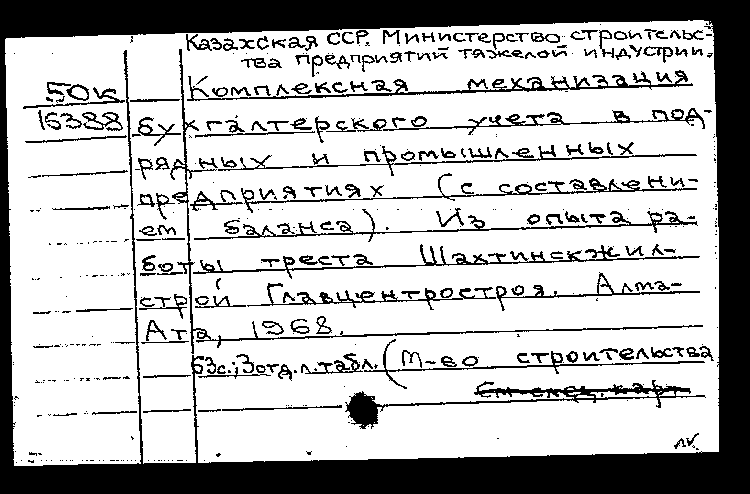 Казахская ССР. Министерство строительс-
тва предприятий тяжелой индустрии.
50к Комплексная механизация
16388 бухгалтерского учета в под-
рядных и промышленных
предприятиях (с составлени-
ем баланса). Из опыта ра-
боты треста Шахтинскжил-
строй Главцентростроя. Алма-
Ата, 1968.
63с.; 3отд.л.табл. (М-во строительства
См спец. карт